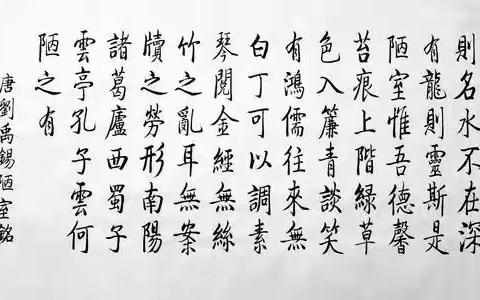 則名水不在深
有龍則靈斯是
陋室惟吾德馨
苔痕上階緑草
色入簾青談笑
有鴻儒往來無
白丁可以調素
琴閱金經無絲
竹之亂耳無案
牘之勞形南陽
諸葛廬西蜀子
雲亭孔子雲何
陋之有
唐劉禹錫陋室銘